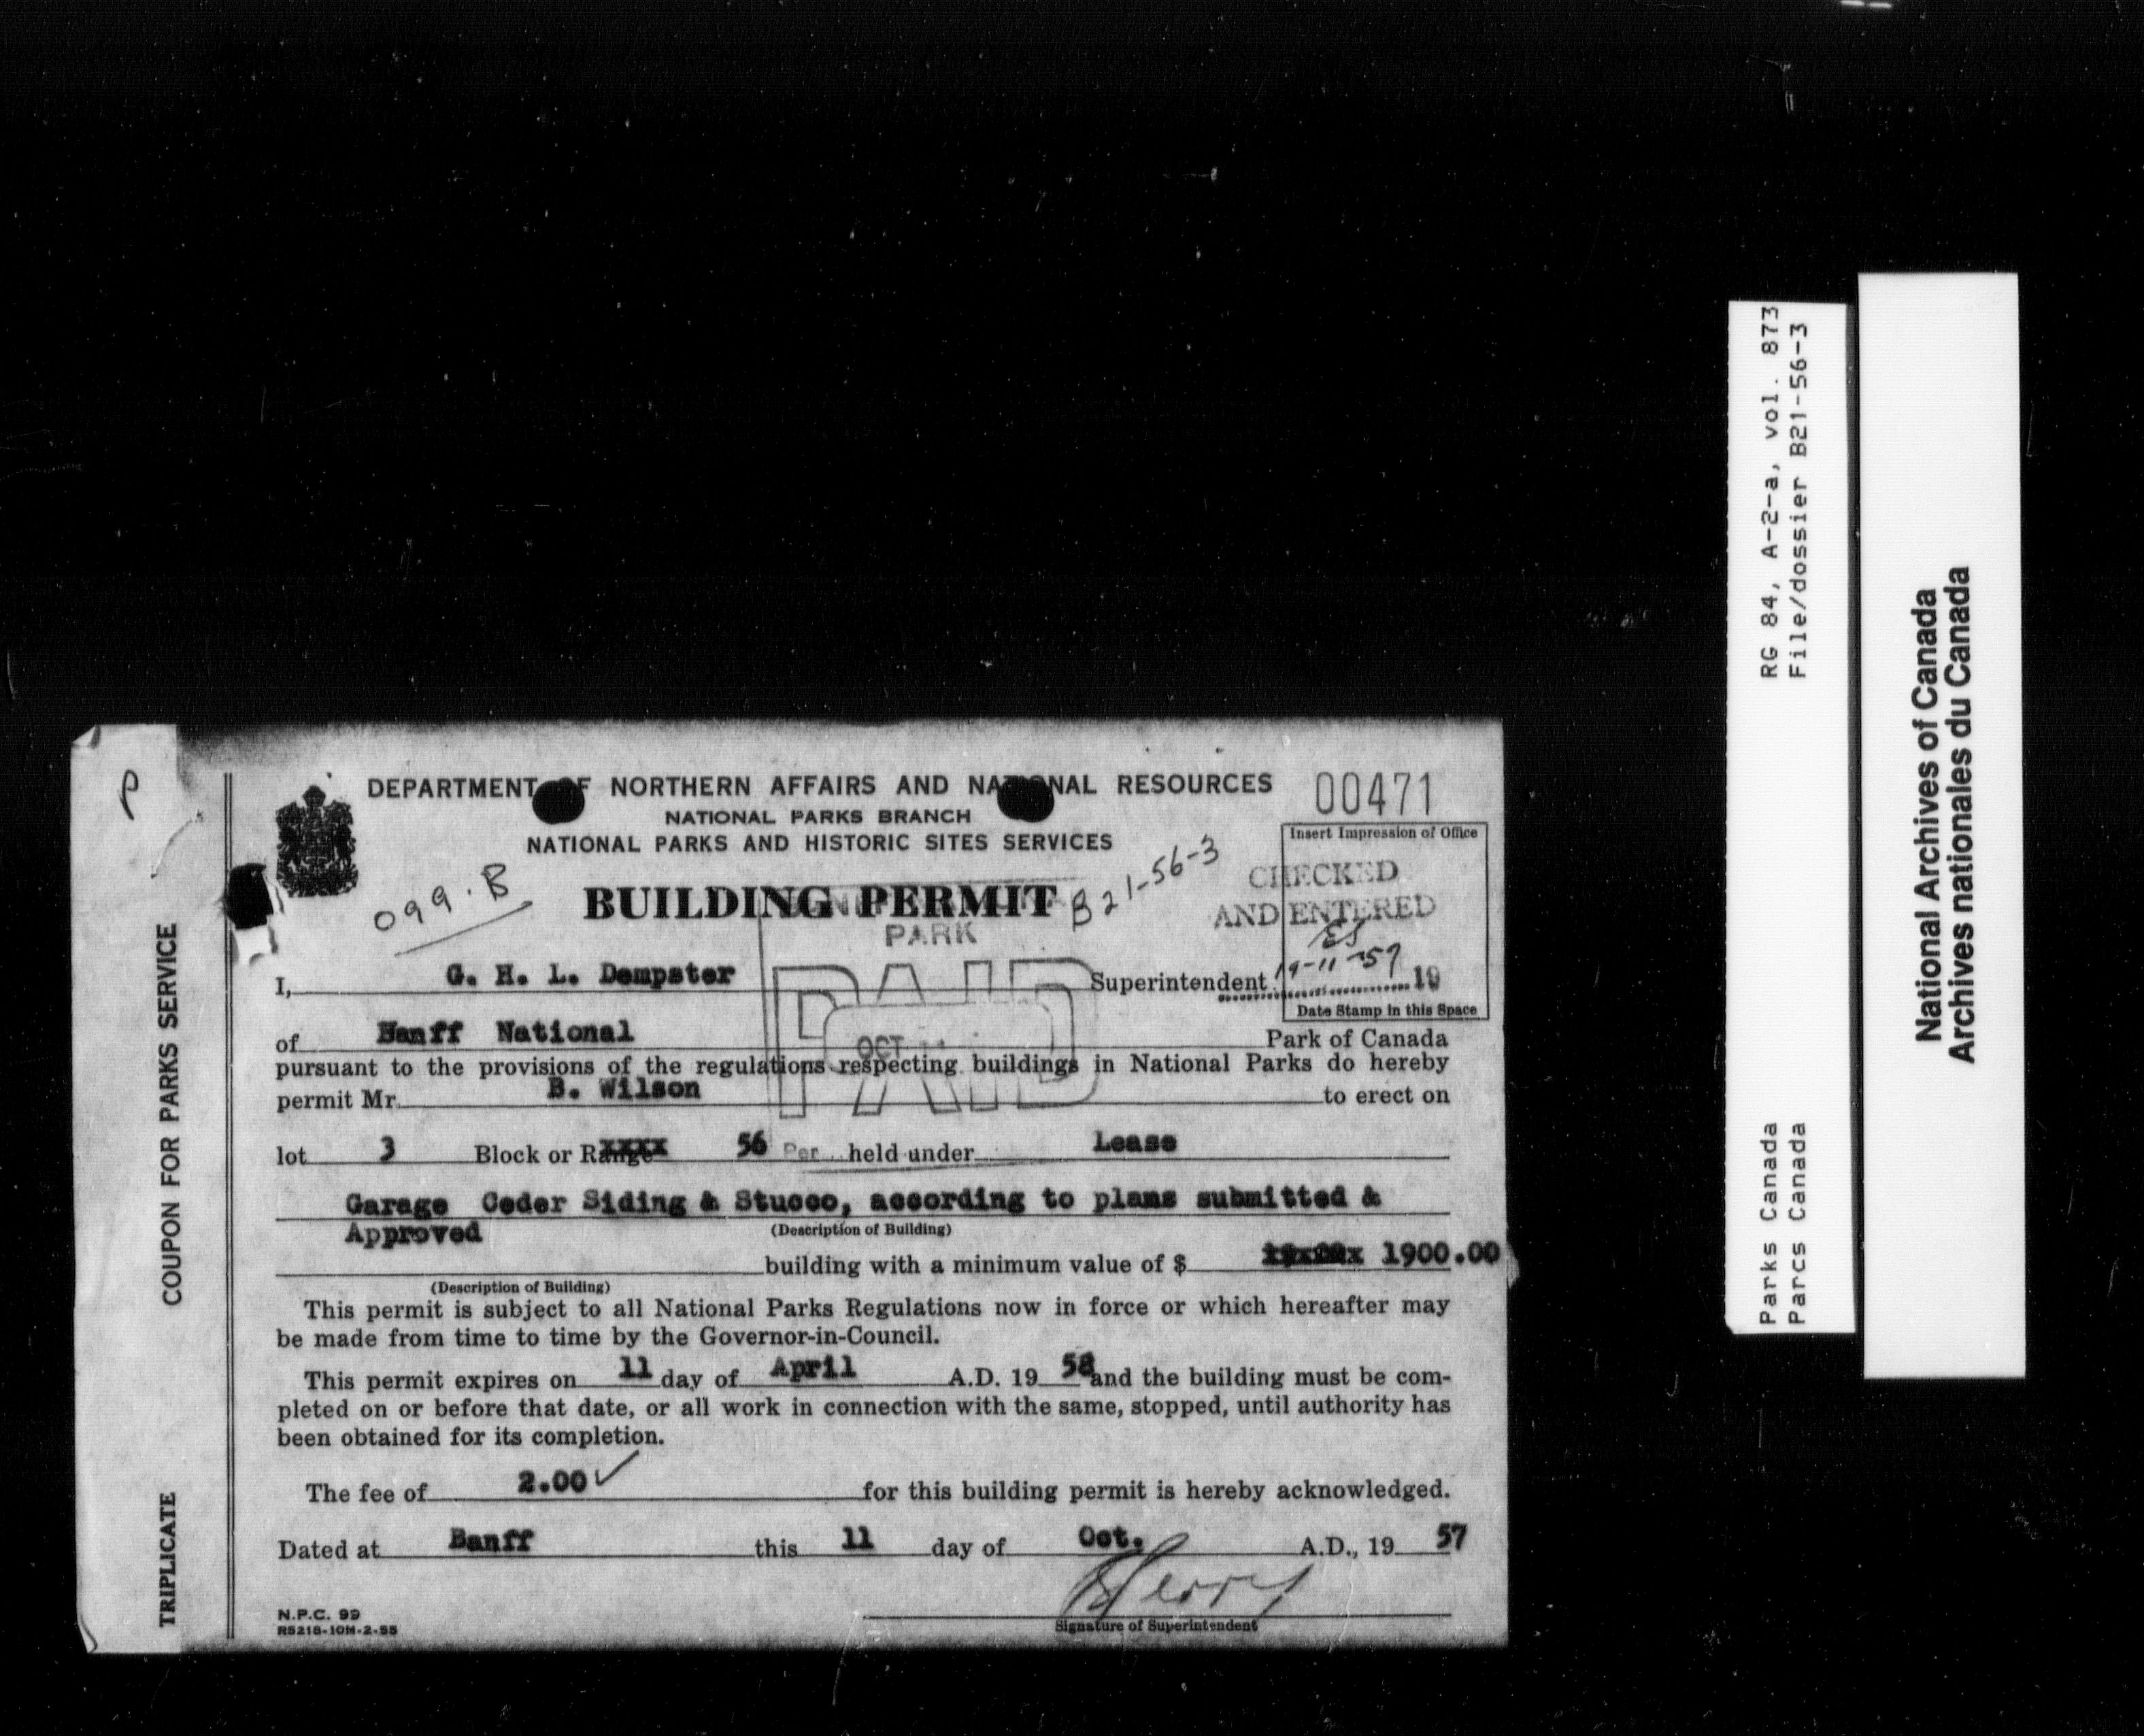 DEPARTMENT OF NORTHERN AFFAIRS AND NATIONAL RESOURCES
00471
NATIONAL PARKS BRANCH
NATIONAL PARKS AND HISTORIC SITES SERVICES
Insert Impression of Office
099.B
BUILDING PERMIT
B21-56-3
CHECKED
AND ENTERED
ES
PARK
19-11-57 19
Date Stamp in this Space
PAID
OCT 11
I, G. H. L. Dempster Superintendent
of Banff National Park of Canada
pursuant to the provisions of the regulations respecting buildings in National Parks do hereby
permit Mr. B. Wilson to erect on
lot 3 Block or Range xxxx 56 Per held under Lease
Garage Ceder Siding & Stucco, according to plans submitted &
Approved
(Description of Building)
building with a minimum value of $ 1900.00
(Description of Building)
This permit is subject to all National Parks Regulations now in force or which hereafter may
be made from time to time by the Governor-in-Council.
This permit expires on 11 day of April A.D. 19 58 and the building must be com-
pleted on or before that date, or all work in connection with the same, stopped, until authority has
been obtained for its completion.
The fee of 2.00 ✓ for this building permit is hereby acknowledged.
Dated at Banff this 11 day of Oct. A.D., 19 57
Signature of Superintendent
N.P.C. 99
R5218-10M-2-55
P
COUPON FOR PARKS SERVICE
TRIPLICATE
RG 84, A-2-a, vol. 873
File/dossier B21-56-3
Parks Canada
Parcs Canada
National Archives of Canada
Archives nationales du Canada